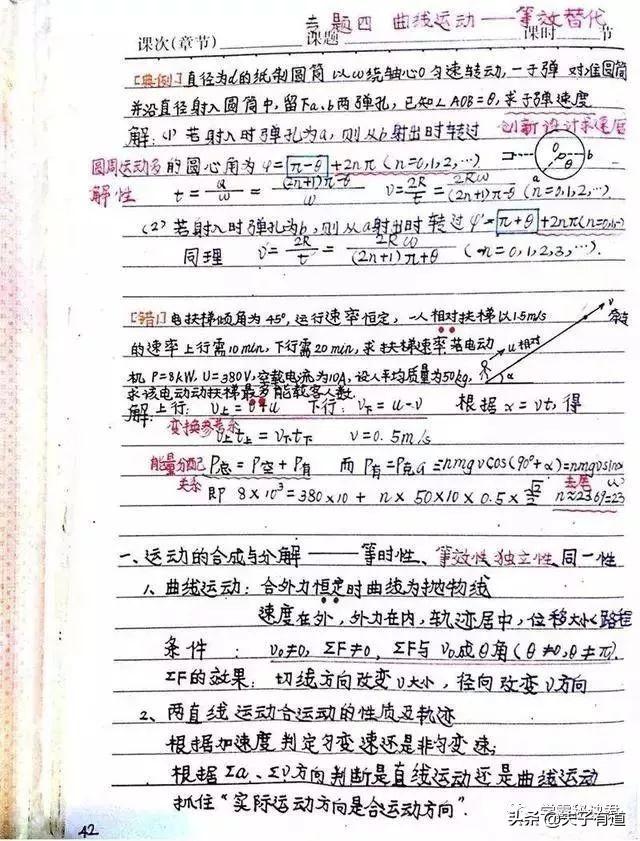 专题四 曲线运动——等效替代
课次(章节) 课题 课时 节
[典例]直径为d的纸制圆筒以ω绕轴心O匀速转动,一子弹对准圆筒
并沿直径射入圆筒中,留下a、b两弹孔,已知∠AOB=θ,求子弹速度
解:(1)若射入时弹孔为a,则从b射出时转过 创新设计求速度
圆周运动多的圆心角为φ=π-θ+2nπ(n=0,1,2,…)
解性 t=φ/ω=(2n+1)π-θ/ω v=2R/t=2Rω/(2n+1)π-θ(n=0,1,2,…).
(2)若射入时弹孔为b,则从a射出时转过φ'=π+θ+2nπ(n=0,1…)
同理 v'=2R/t=2Rω/(2n+1)π+θ (n=0,1,2,3,…).
[错1]电扶梯倾角为45°,运行速率恒定,一人相对扶梯以1.5m/s
的速率上行需10min,下行需20min,求扶梯速率若电动
机P=8kW,U=380V,空载电流为10A,设人平均质量为50kg,
求该电动扶梯最多能载客人数.
v 牵连
u相对
α
解:上行:v上=v+u 下行:v下=u-v 根据x=vt,得
变换参考系
v上t上=v下t下 v=0.5m/s
能量分配 P总=P空+P有 而P有=P克G=nmgvcos(90°+α)=nmgvsinα
关系 即8×10³=380×10+n×50×10×0.5×√2/2 n≈23.69=23 去尾
一、运动的合成与分解——等时性、等效性 独立性 同一性
1、曲线运动:合外力恒定时曲线为抛物线
速度在外,外力在内,轨迹居中,位移大小<路程
条件:v₀≠0,ΣF≠0,ΣF与v₀成θ角(θ≠0,θ≠π).
ΣF的效果:切线方向改变v大小,径向改变v方向
2、两直线运动合运动的性质及轨迹
根据加速度判定匀变速还是非匀变速;
根据Σa、Σv方向判断是直线运动还是曲线运动
抓住“实际运动方向是合运动方向”.
42
头条@夫子有道